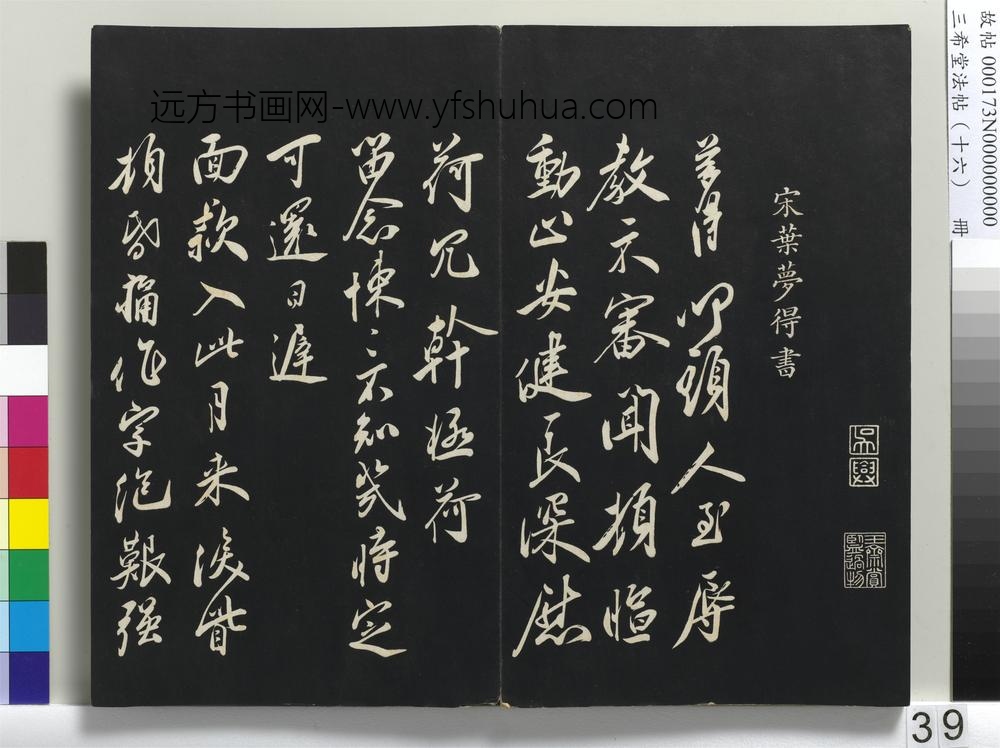 宋葉夢得書
夢得 叩頭人至 辱
教示審聞頓臨
動止安健良深慰
荷冗幹極荷
留念悚悚不知幾時定
可還日遲
面款入此月来淡
頓昏痛作字艱强
远方书画网-www.yfshuhua.com
故帖 000173N000000000
三希堂法帖（十六） 冊
39